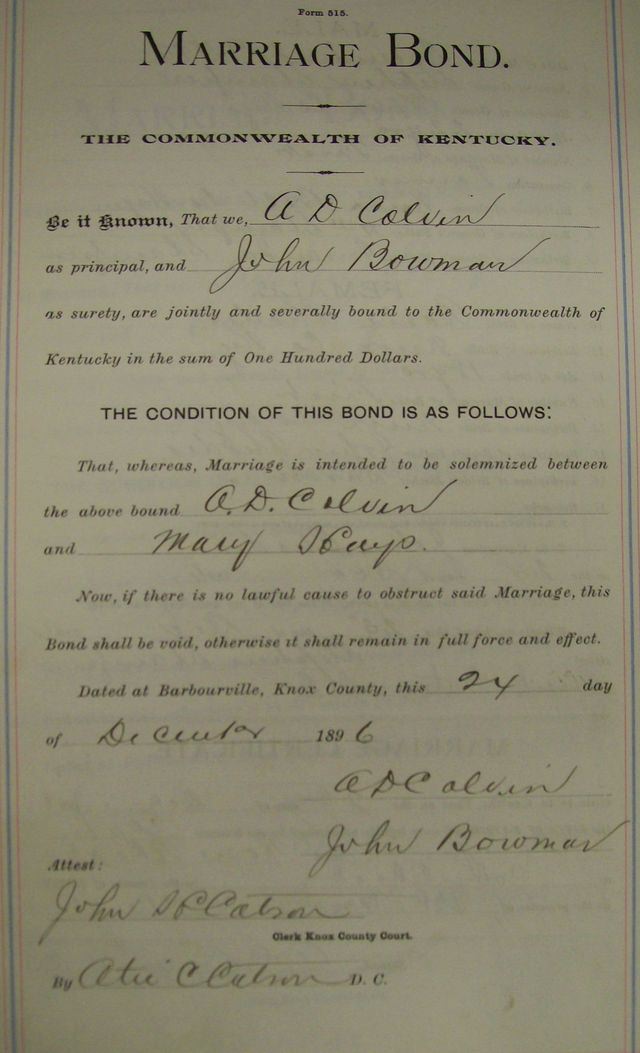 Form 515.
MARRIAGE BOND.
THE COMMONWEALTH OF KENTUCKY.
Be it Known, That we, A D Colvin
as principal, and John Bowman
as surety, are jointly and severally bound to the Commonwealth of
Kentucky in the sum of One Hundred Dollars.
THE CONDITION OF THIS BOND IS AS FOLLOWS:
That, whereas, Marriage is intended to be solemnized between
the above bound A. D. Colvin
and Mary Hays.
Now, if there is no lawful cause to obstruct said Marriage, this
Bond shall be void, otherwise it shall remain in full force and effect.
Dated at Barbourville, Knox County, this 24 day
of December 1896
A D Colvin
John Bowman
Attest:
John H Catron
Clerk Knox County Court.
By C Catron D. C.